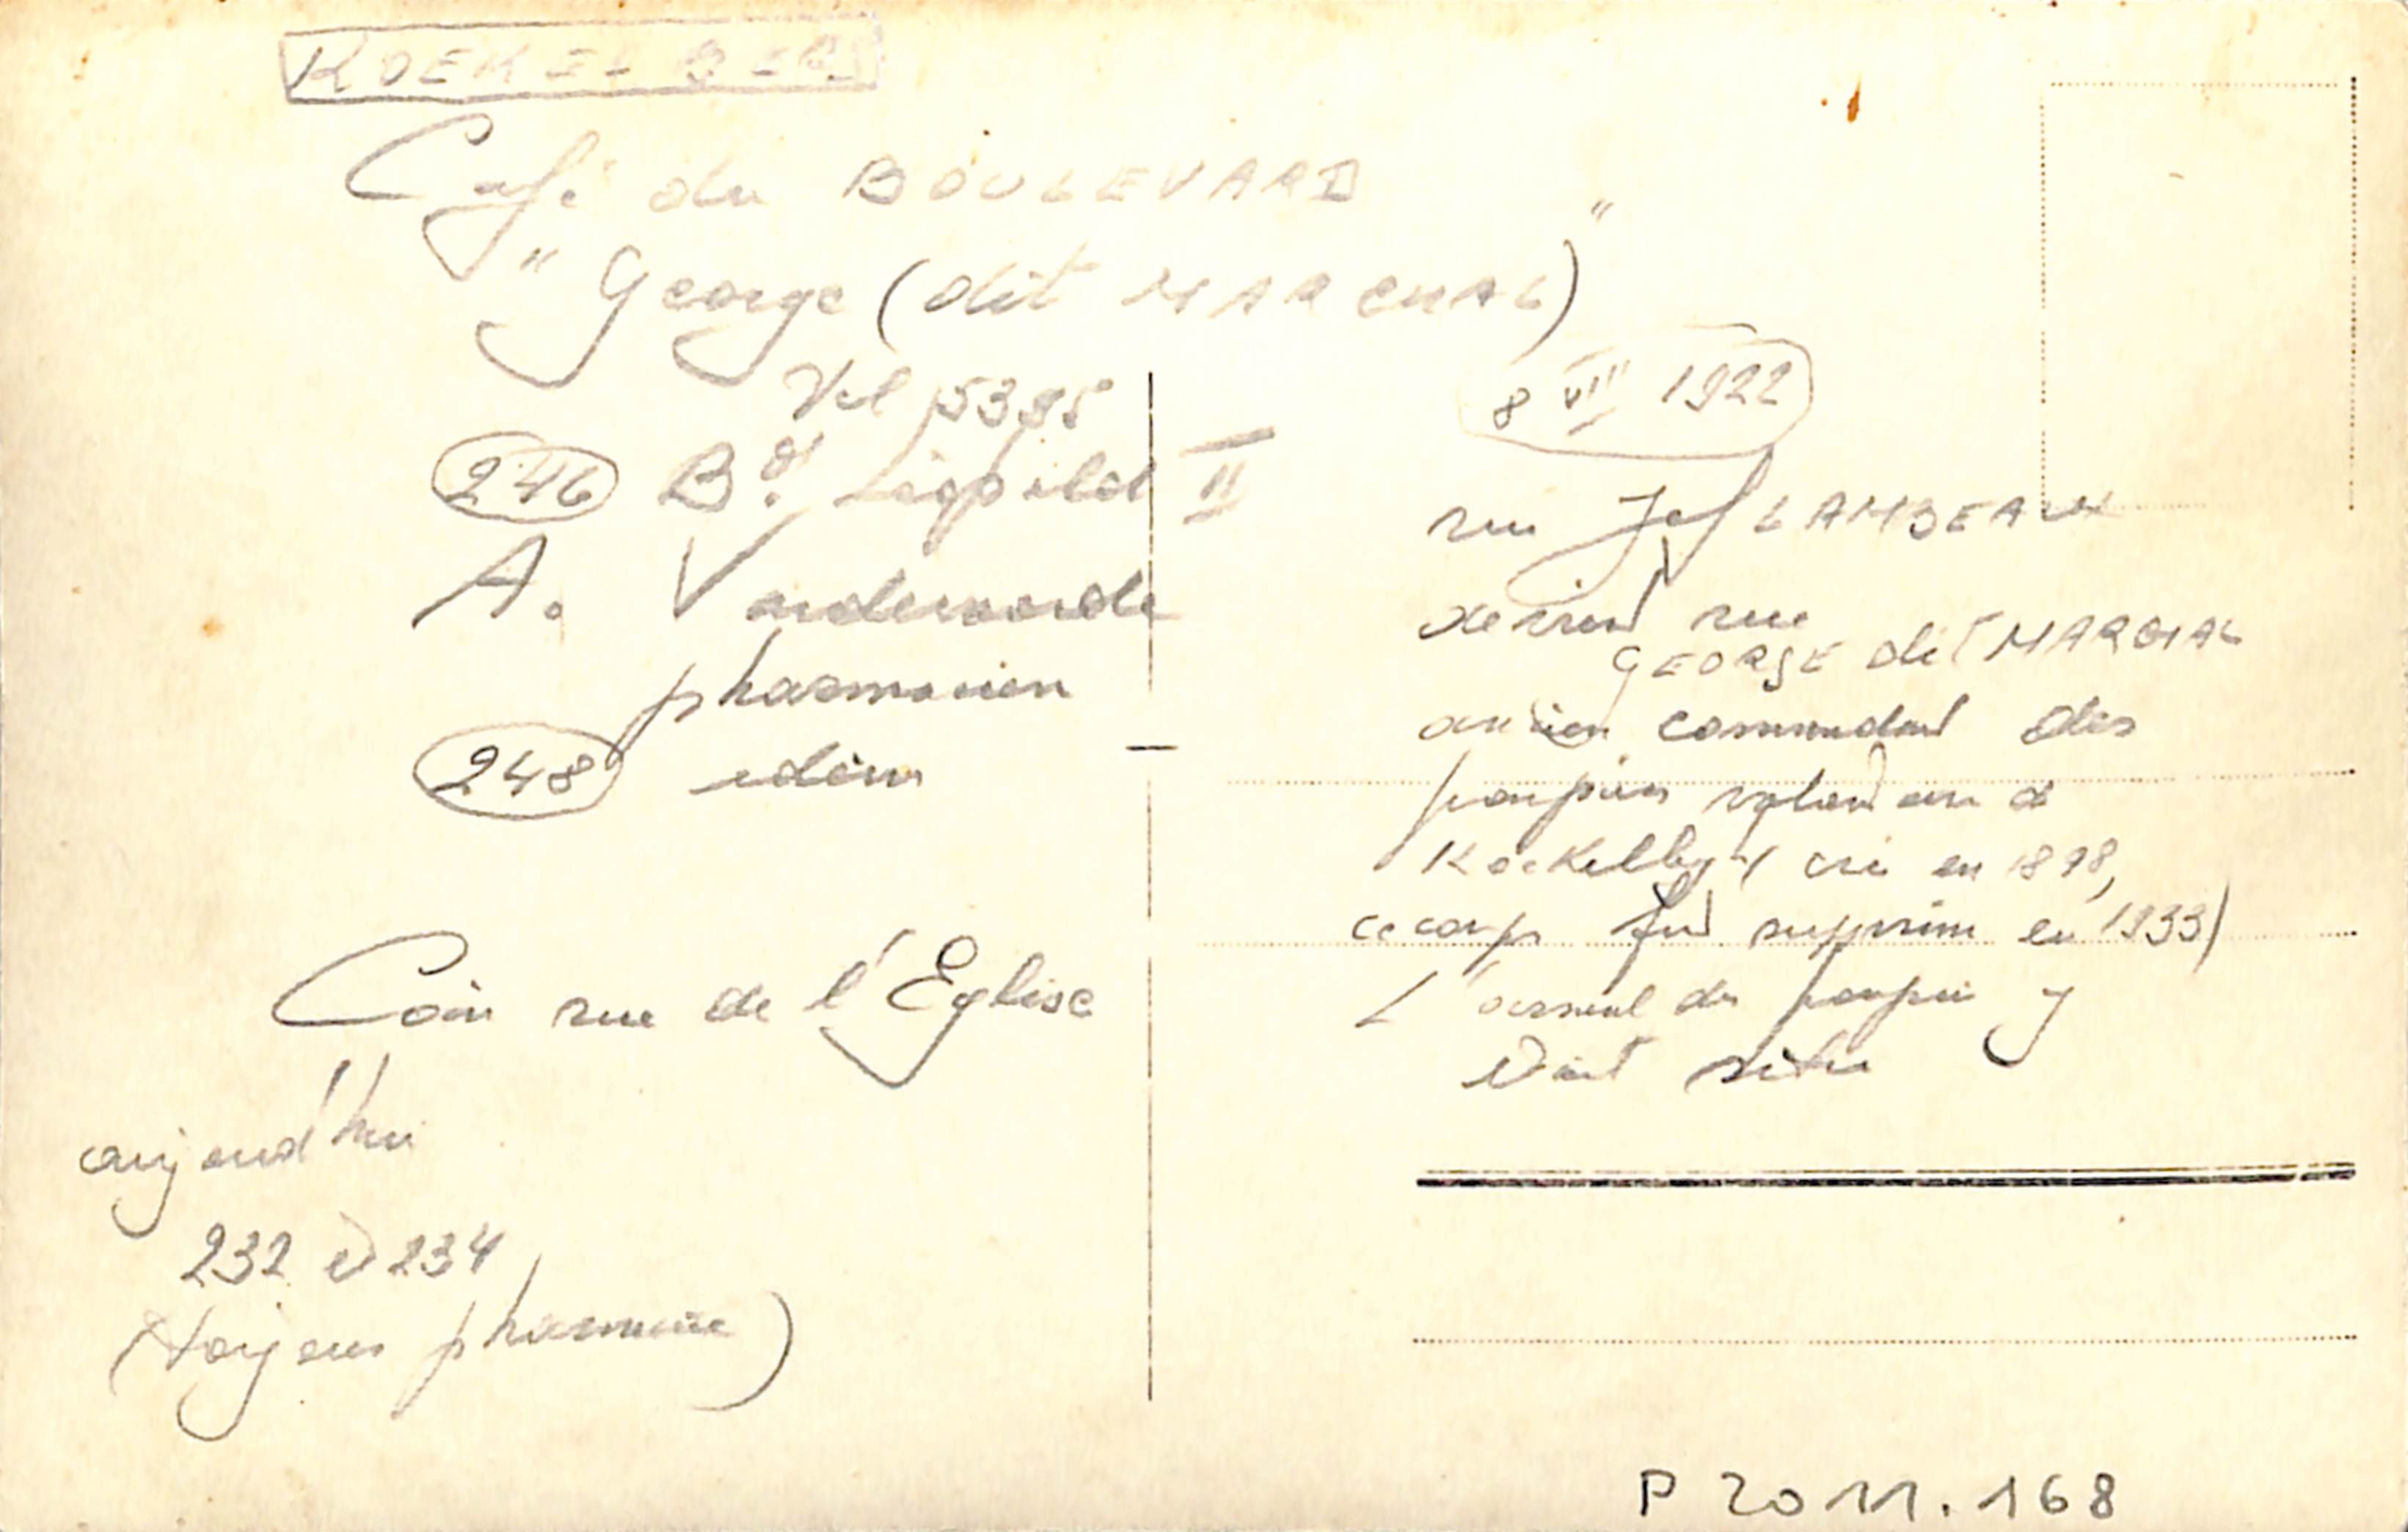 KOEKELBERG
Café du BOULEVARD
"George (dit MARCHAL)"
Tel 5395
246 Bd. Léopold II
A. Vandevoorde
pharmacien
248 idem
Coin rue de l'Eglise
aujourd'hui
232 et 234
(toujours pharmacie)
8 VIII 1922
rue Jef LAMBEAUX
devient rue
GEORGE dit MARCHAL
ancien commandant des
pompiers volontaires de
Koekelberg (créé en 1898,
ce corps fut supprimé en 1933)
L'arsenal des pompiers y
était situé
P2011.168